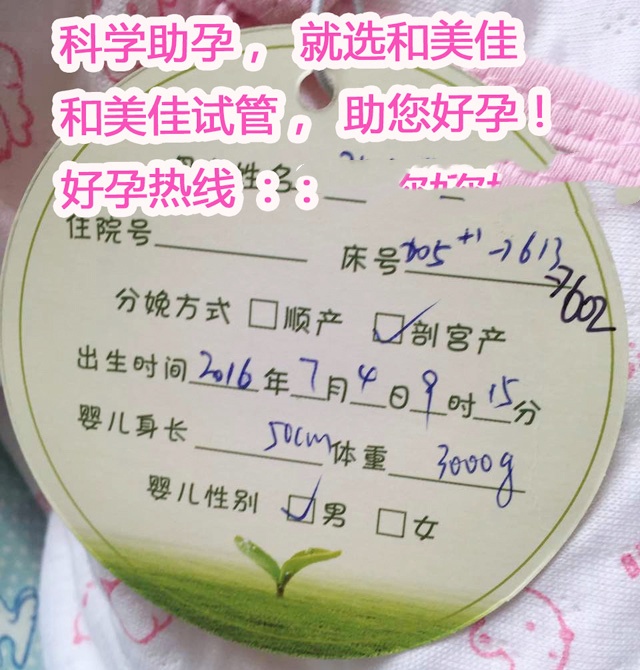 科学助孕， 就选和美佳
和美佳试管， 助您好孕！
姓名
好孕热线：：
住院号 床号705+1→613
→602
分娩方式 □顺产 ☑剖宫产
出生时间2016年7月4日9时15分
婴儿身长 50cm 体重 3000g
婴儿性别 ☑男 □女